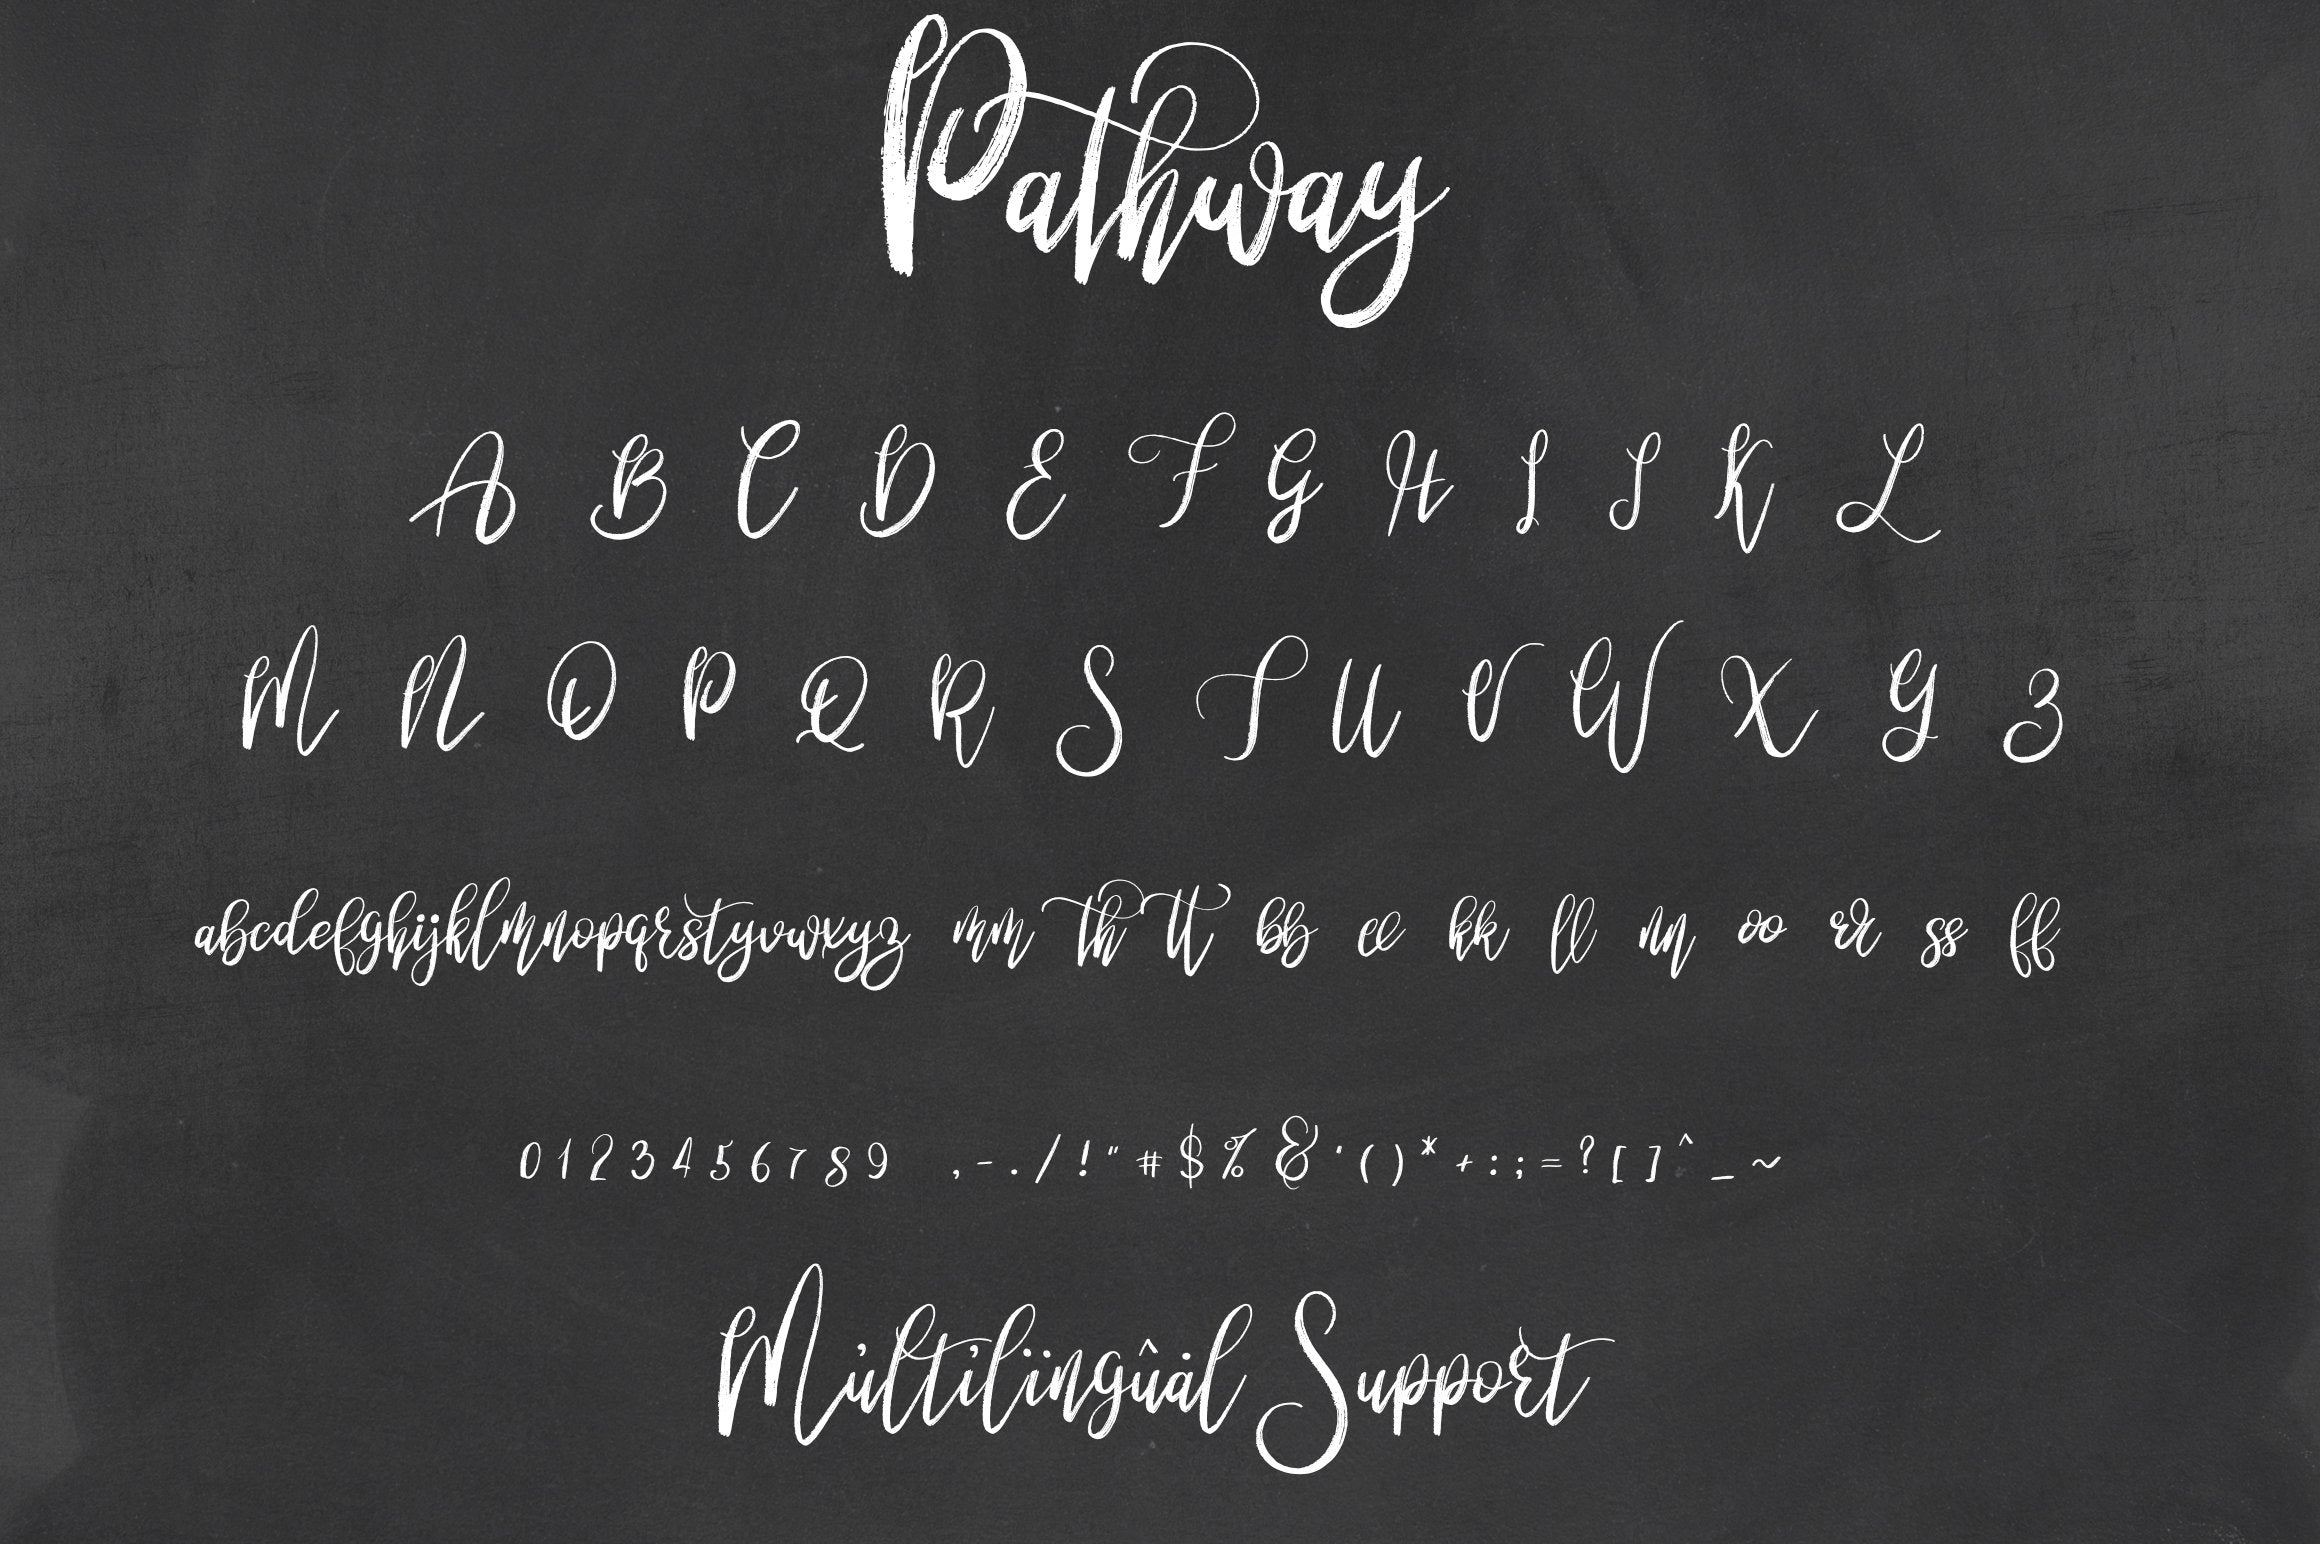 Pathway
A B C D E F G H I J K L
M N O P Q R S T U V W X Y Z
abcdefghijklmnopqrstyvwxyz mm th tt bb ee kk ll nn oo rr ss ff
0 1 2 3 4 5 6 7 8 9 , - . / ! " # $ % & ' ( ) * + : ; = ? [ ] ^ _ ~
Múltílïngûȧl Support